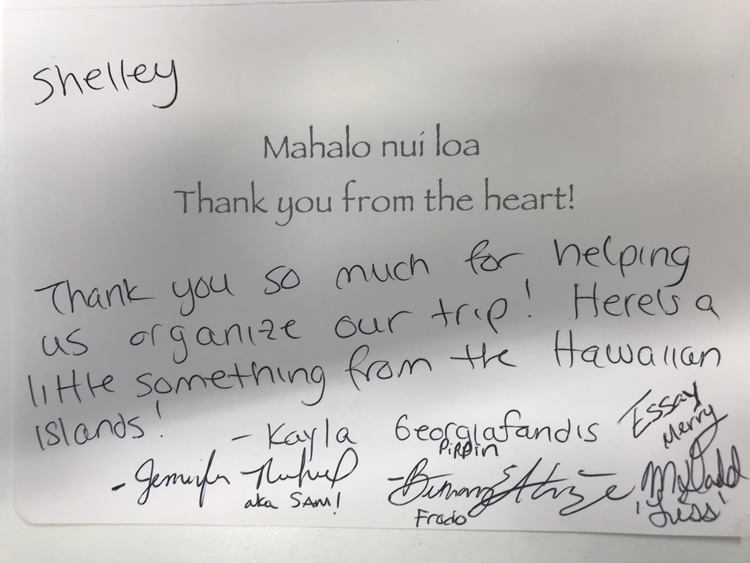 Shelley
Mahalo nui loa
Thank you from the heart!
Thank you so much for helping
us organize our trip! Here's a
little something from the Hawaiian
islands!
- Kayla Georgiafandis
Pippin
Essay
Merry
- Jennifer
aka SAM!
Frodo
'Tess'